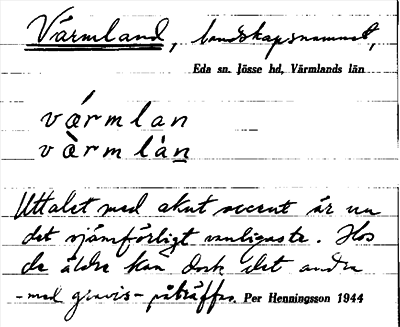 Värmland, landskapsnamnet,
Eda sn. Jösse hd, Värmlands län
vármlan
vàrmlàn
Uttalet med akut accent är nu
det ojämförligt vanligaste. Hos
de äldre kan dock det andra
-med gravis- påträffas. Per Henningsson 1944